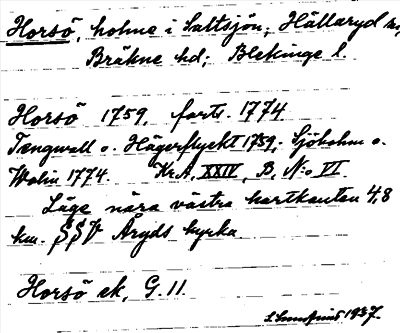 Horsö, holme i Saltsjön; Hällaryd sn,
Bräkne hd; Blekinge l.
Horsö 1759, forts. 1774
Tengwall o. Hägerflyckt 1759; Sjöholm o.
Wolin 1774. Kr.A, XXIV, B, N:o VI.
Läge nära västra kartkanten 4,8
km. SSV Åryds kyrka.
Horsö ek, G. 11.
1937.